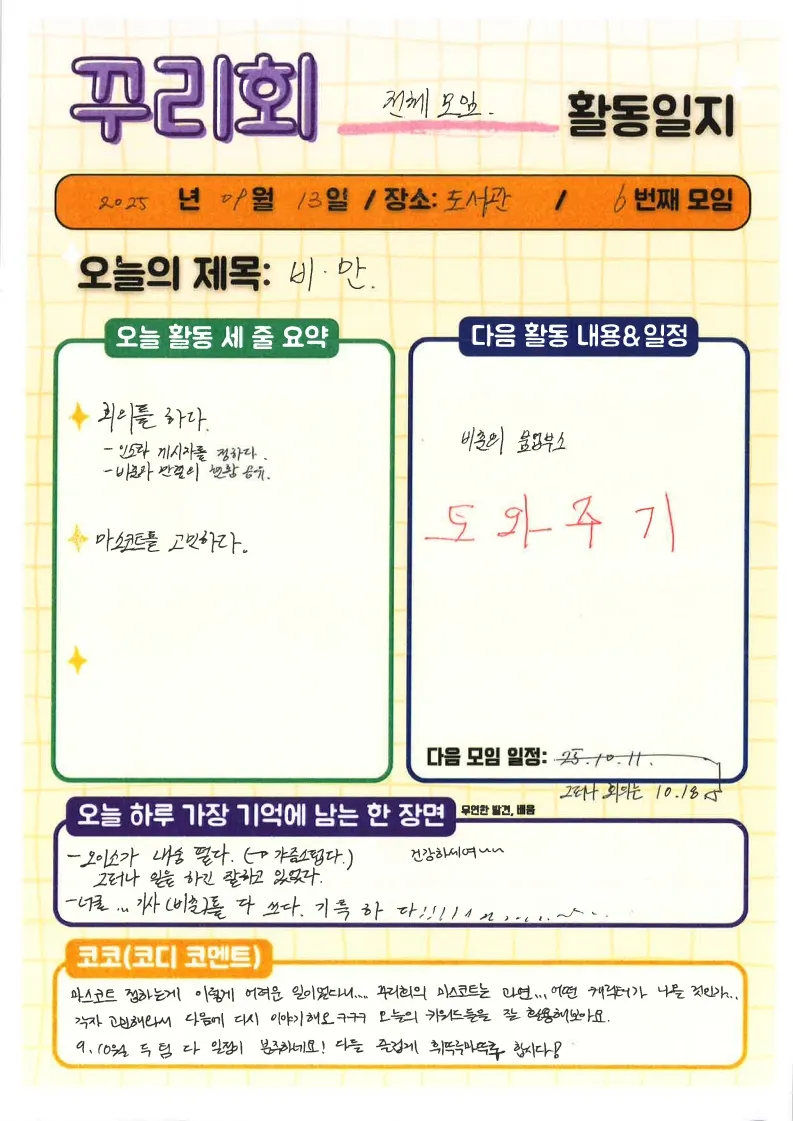 꾸리회 전체 모임. 활동일지
2025 년 09월 13일 / 장소: 도서관 / 6번째 모임
오늘의 제목: 비·만.
오늘 활동 세 줄 요약
회의를 하다.
- 인스타 게시자를 정하다.
- 비춘와 반려의 현황 공유.
마스코트를 고민하다.
다음 활동 내용&일정
비춘의 붐업부스
도와주기
다음 모임 일정: 25.10.11.
그러나 회의는 10.18
오늘 하루 가장 기억에 남는 한 장면 우연한 발견, 배움
- 오이소가 내숭 떨다. (→ 갸름스럽다.)
그러나 일을 하긴 잘하고 있었다.
건강하세여~~
- 너로 ... 기사 (비춘)를 다 쓰다. 기특하다!!!!
코코(코디 코멘트)
마스코트 정하는게 이렇게 어려운 일이었다니... 꾸리회의 마스코트는 과연... 어떤 캐릭터가 나올 것인가..
각자 고민해와서 다음에 다시 이야기해요 ㅋㅋㅋ 오늘의 키워드들을 잘 활용해보아요.
9, 10월은 두 팀 다 일정이 분주하네요! 다들 즐겁게 휘뚜루마뚜루 합시다!